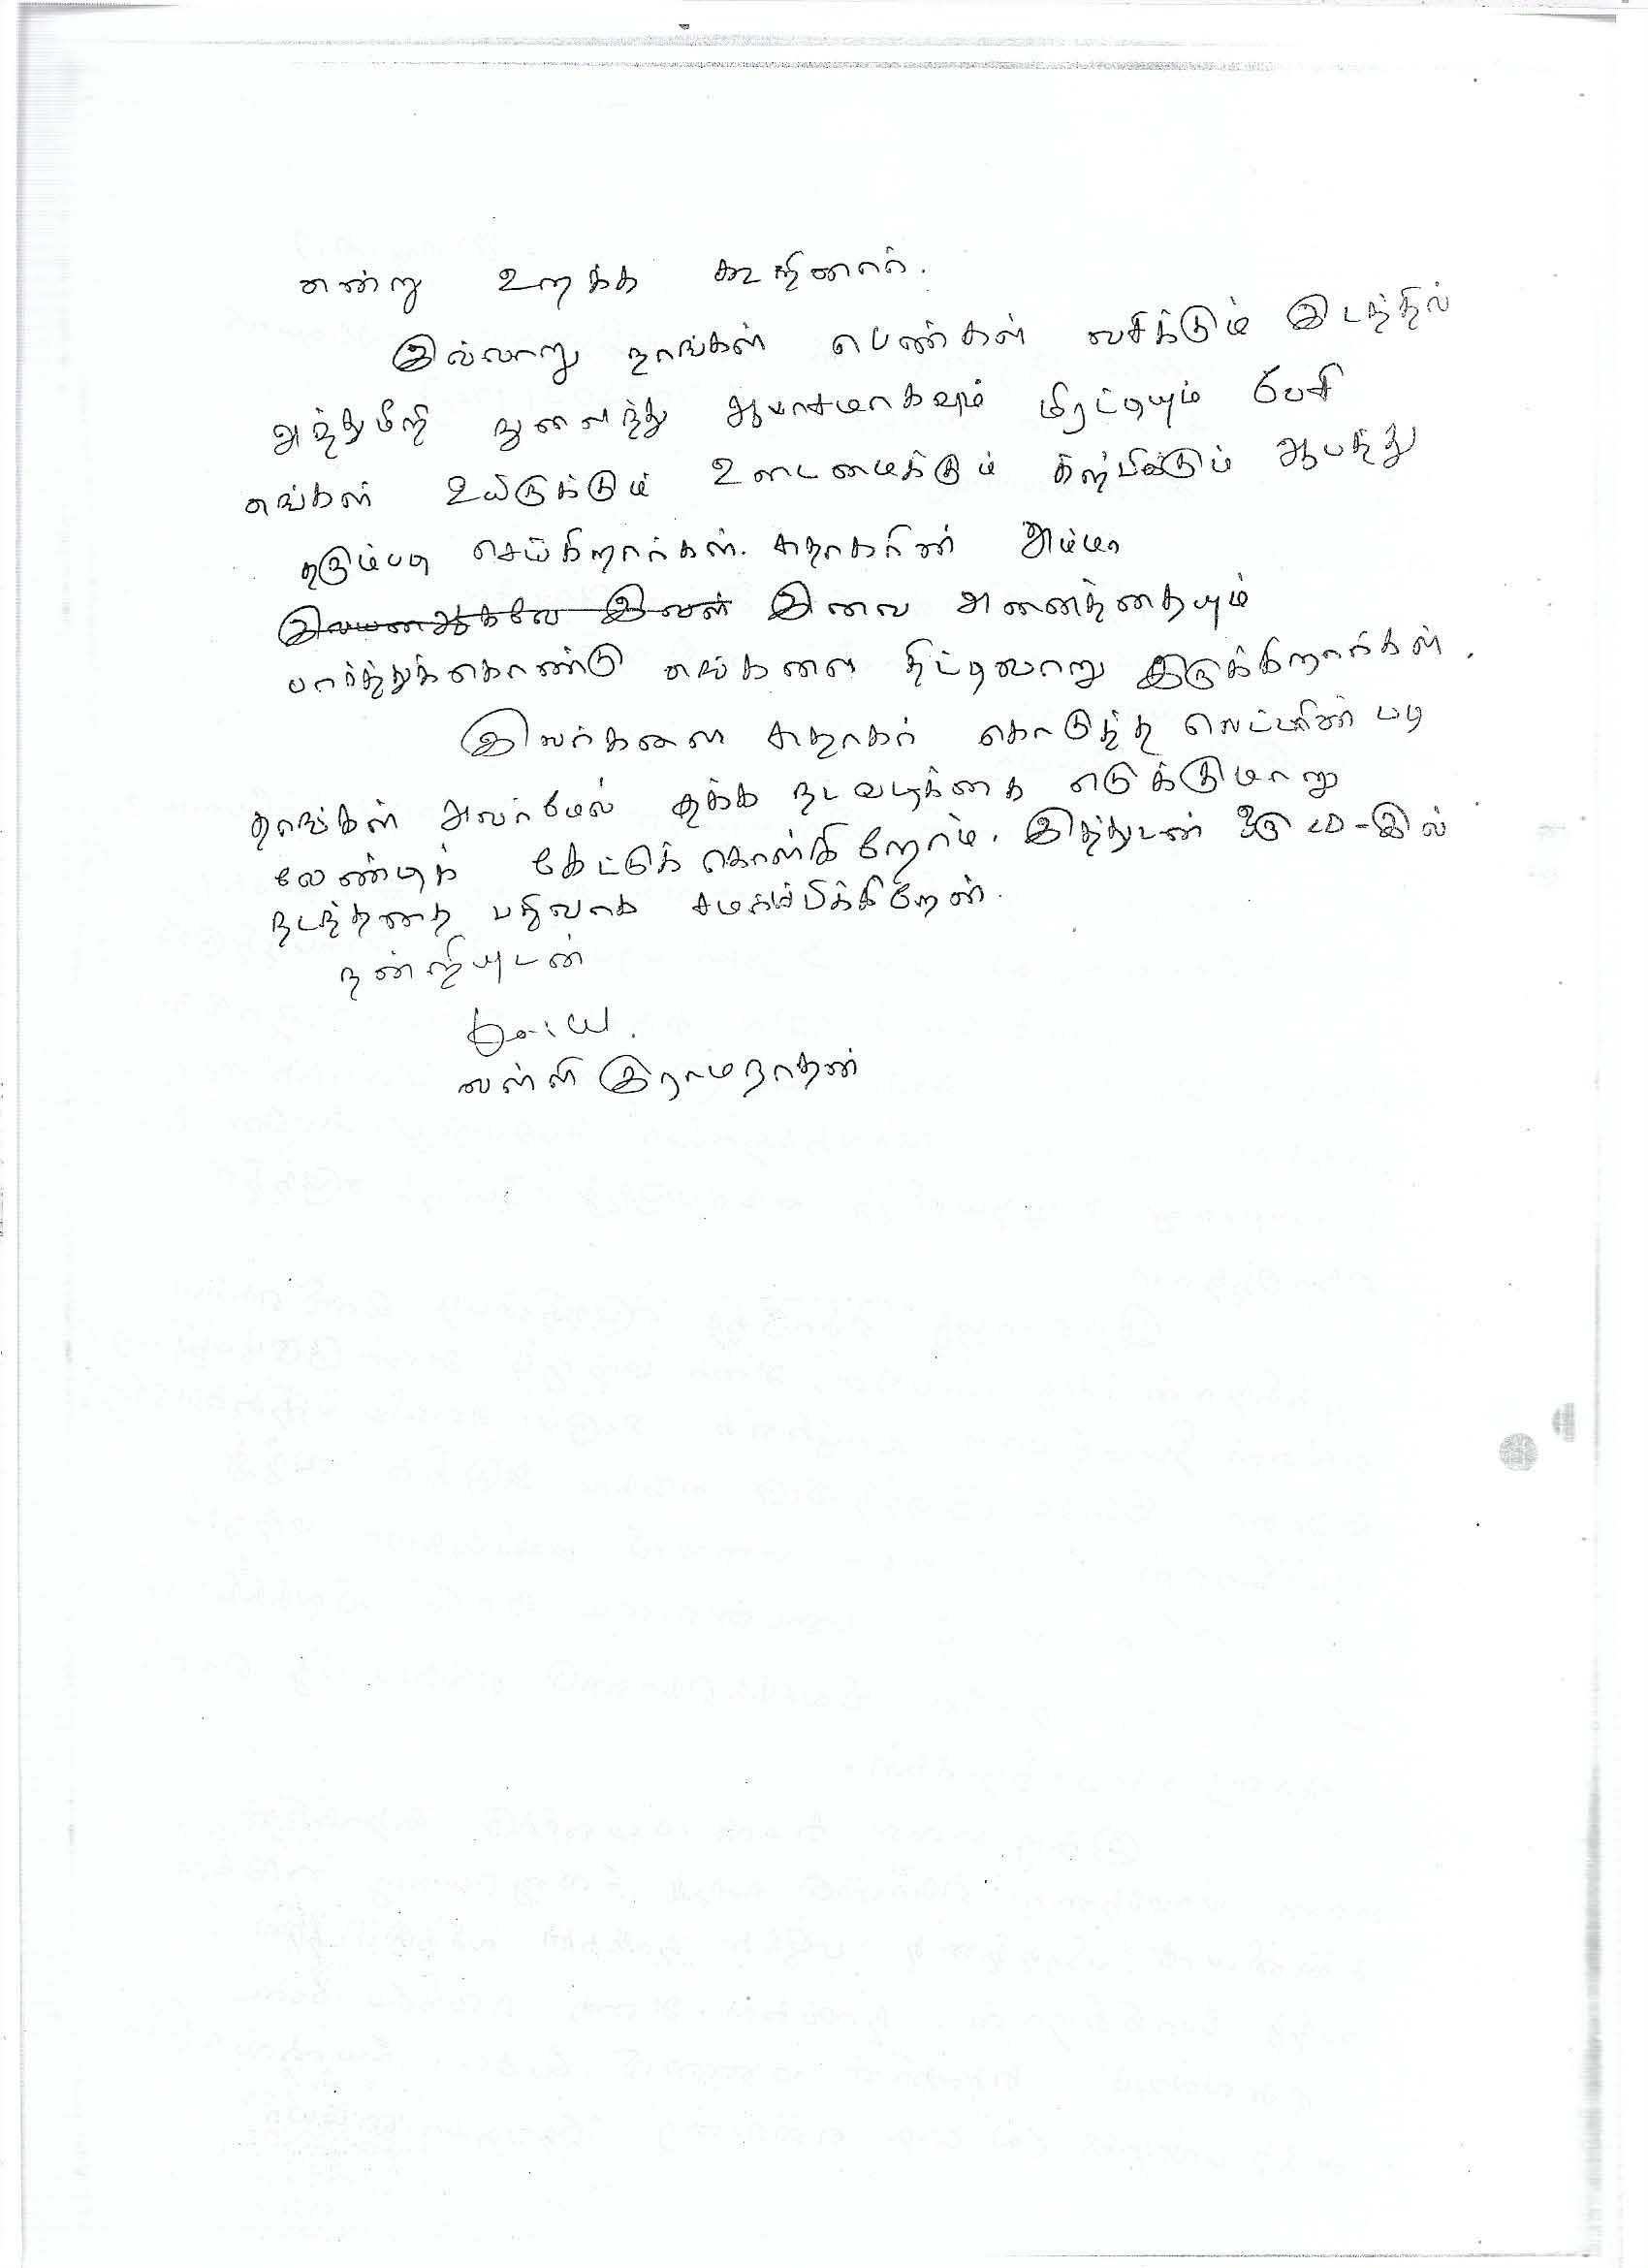 என்று உறக்க கூறினார்.
இவ்வாறு நாங்கள் பெண்கள் வசிக்கும் இடத்தில்
அத்துமீறி நுழைந்து ஆபாசமாகவும் மிரட்டியும் பேசி
எங்கள் உயிருக்கும் உடைமைக்கும் கற்பிக்கும் ஆபத்து
தரும்படி செய்கிறார்கள். சுதாகரின் அம்மா
இவை அனைத்தையும்
பார்த்துக்கொண்டு எங்களை திட்டிவாறு இருக்கிறார்கள்.
இவர்களை சுதாகர் கொடுத்த லெட்டரின் படி
தாங்கள் அவர்மேல் தக்க நடவடிக்கை எடுக்குமாறு
வேண்டிக் கேட்டுக் கொள்கிறோம். இத்துடன் CD-இல்
நடந்ததை பதிவாக சமர்ப்பிக்கிறேன்.
நன்றியுடன்
வள்ளி இராமநாதன்